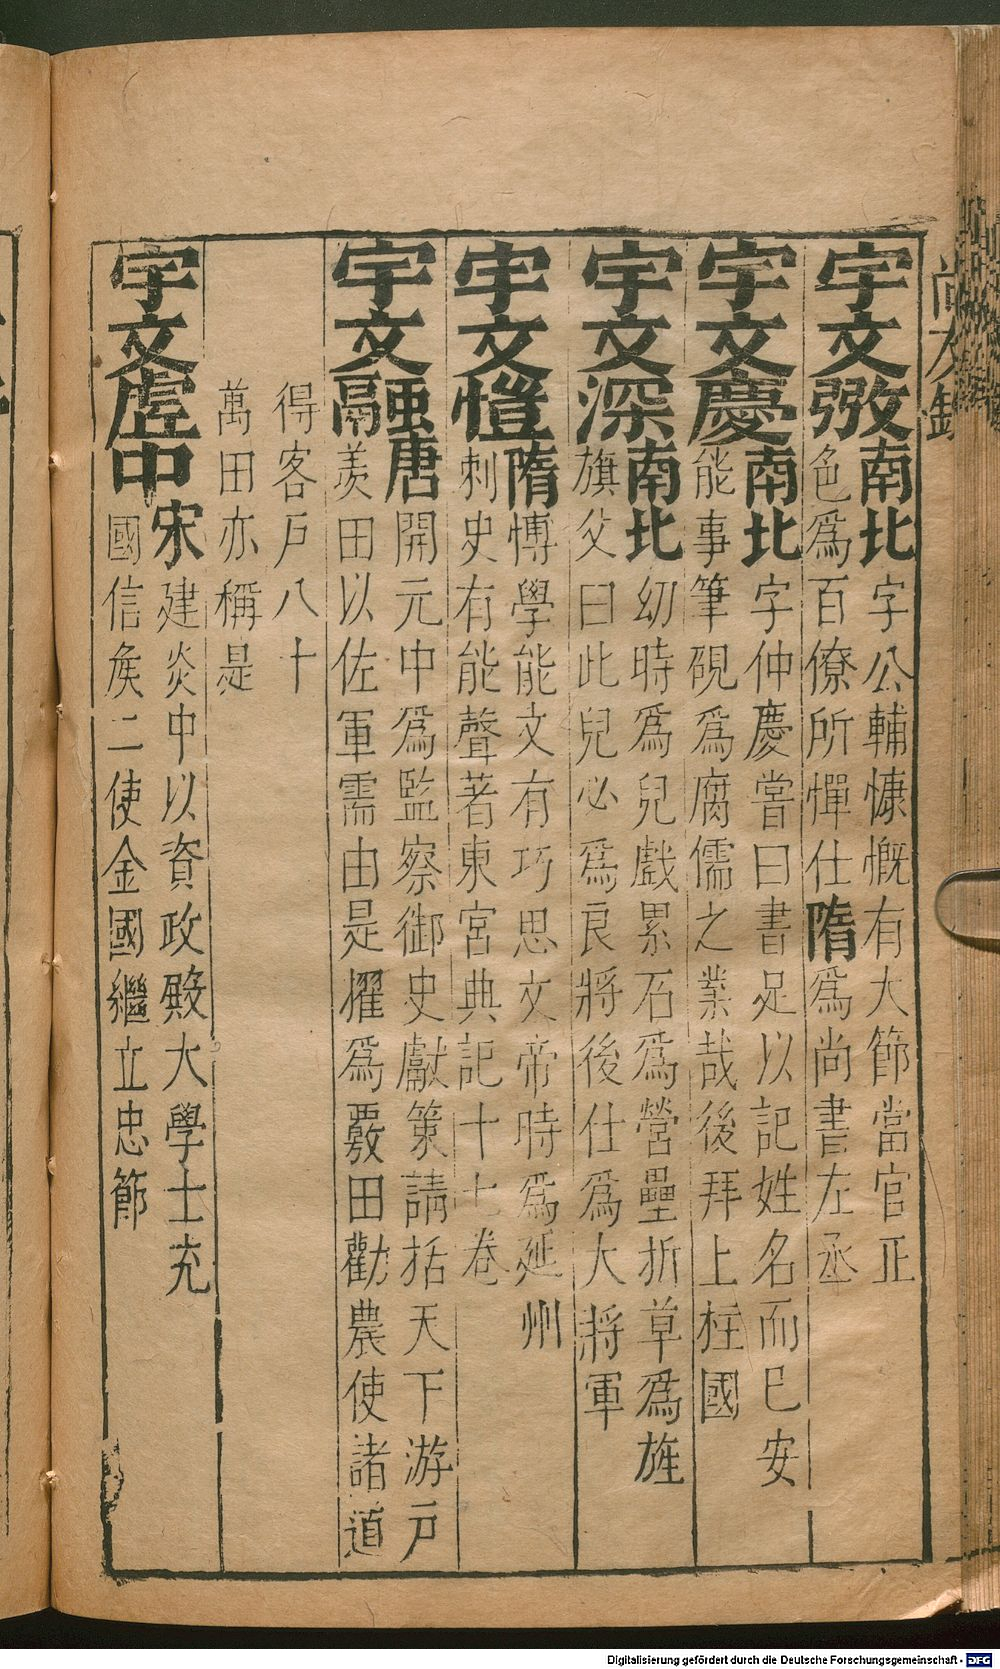 宇文㢸南北字公輔慷慨有大節當官正
色爲百僚所憚仕隋爲尚書左丞
宇文慶南北字仲慶嘗曰書足以記姓名而已安
能事筆硯爲腐儒之業哉後拜上柱國
宇文深南北幼時爲兒戲累石爲營壘折草爲旌
旗父曰此兒必爲良將後仕爲大將軍
宇文愷隋博學能文有巧思文帝時爲延州
刺史有能聲著東宮典記十七卷
宇文融唐開元中爲監察御史獻策請括天下游戶
羨田以佐軍需由是擢爲覈田勸農使諸道
得客戶八十
萬田亦稱是
宇文虛中宋建炎中以資政殿大學士充
國信矦二使金國繼立忠節
尚友錄
Digitalisierung gefördert durch die Deutsche Forschungsgemeinschaft - DFG